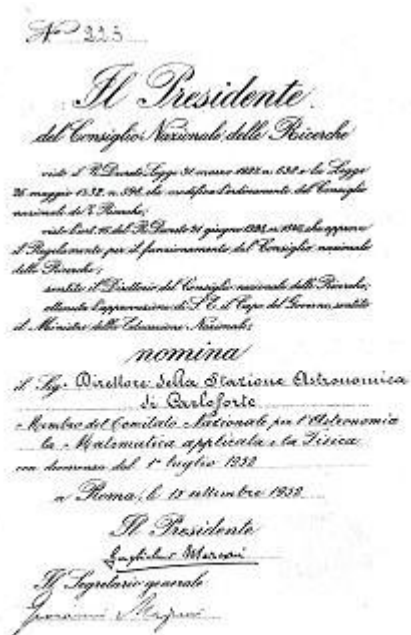 Nº 225
Il Presidente
del Consiglio Nazionale delle Ricerche
visto il R. Decreto Legge 31 marzo n. e la Legge
26 maggio 1932, n. 598, che modifica l'ordinamento del Consiglio
nazionale delle Ricerche;
visto l'art. del R. Decreto giugno che approva
il Regolamento per il funzionamento del Consiglio nazionale
delle Ricerche;
sentito il Direttorio del Consiglio nazionale delle Ricerche;
ottenuta l'approvazione di S. E. il Capo del Governo sentito
il Ministro della Educazione Nazionale;
nomina
il Sig. Direttore della Stazione Astronomica
di Carloforte
Membro del Comitato Nazionale per l'Astronomia
la Matematica applicata e la Fisica
con decorrenza dal 1º luglio 1932
Roma, settembre 1932
Il Presidente
Guglielmo Marconi
Il Segretario generale
Giovanni Magrini